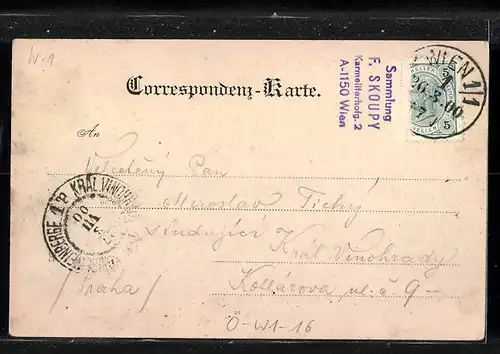 W-1
WIEN 1/1
26.3.00
5
Sammlung
F. SKOUPY
Karmeliterhofg. 2
A-1150 Wien
Correspondenz-Karte.
An
Velectěný Pan
Miroslav Tichý
studující
Král Vinohrady
/Praha/
Kollárova ul. č 9-
KRÁL VINOHRADY
Ö-W1-16